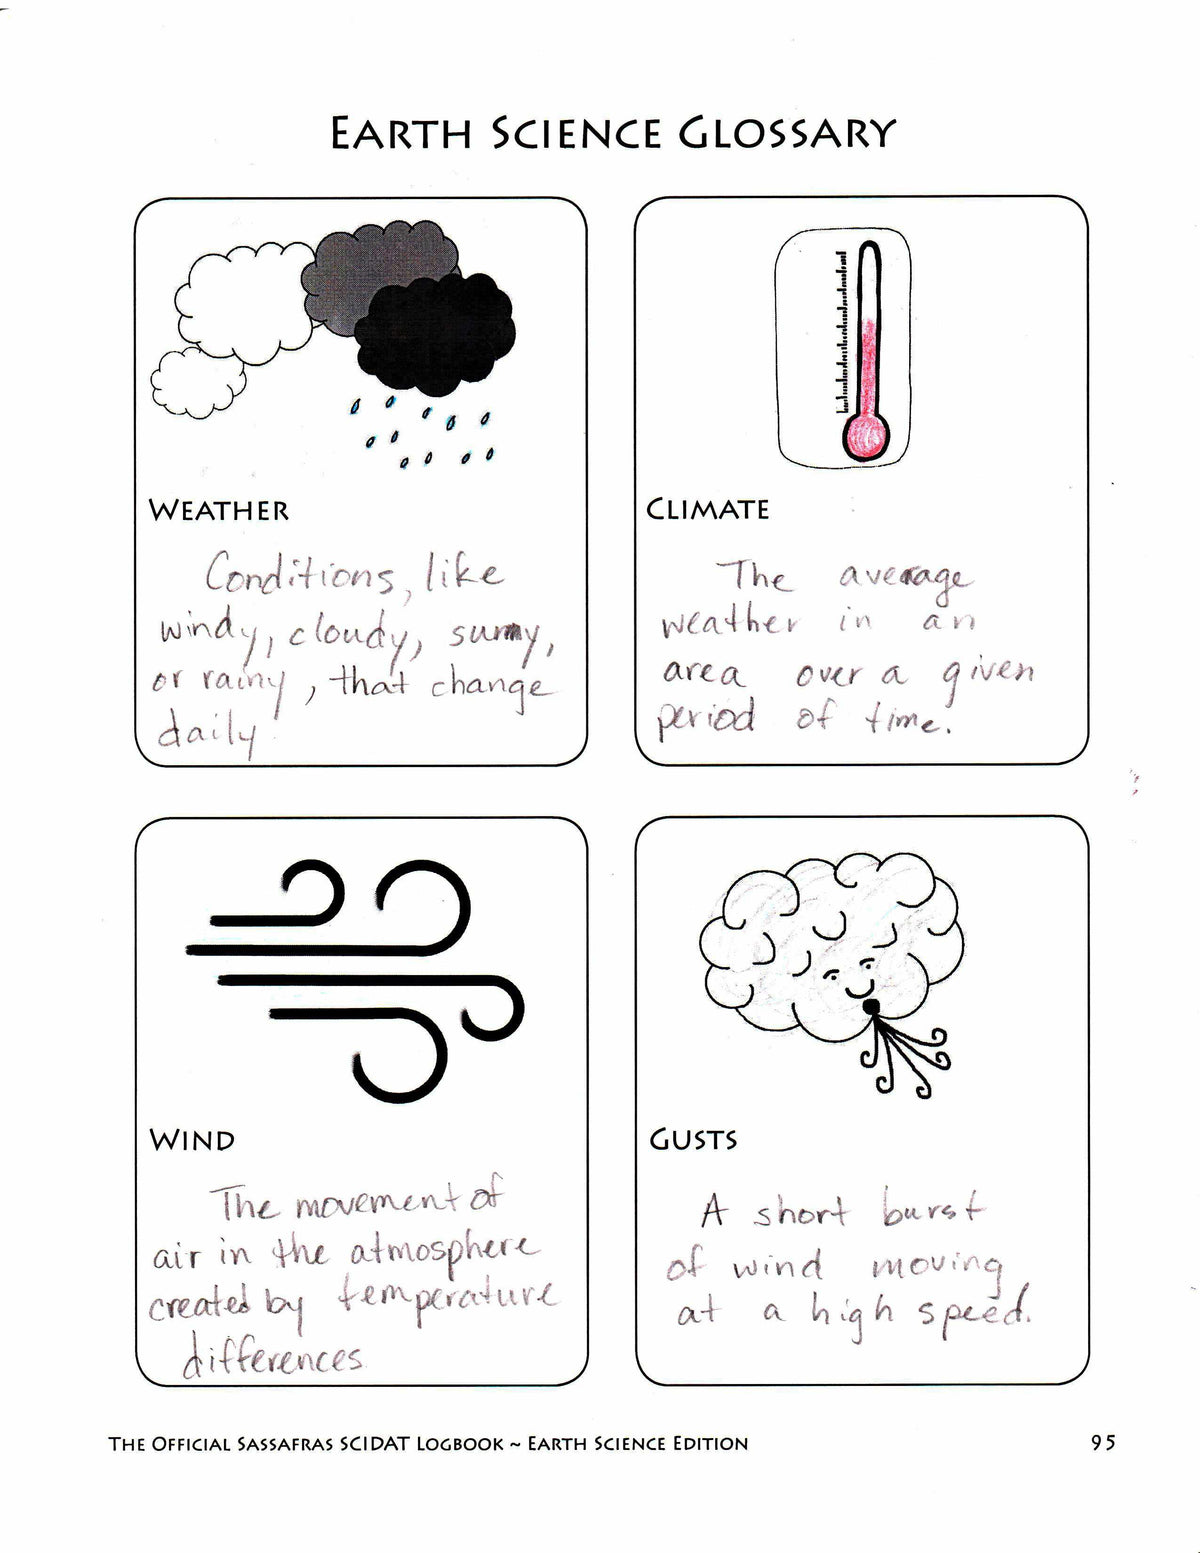 EARTH SCIENCE GLOSSARY
WEATHER
Conditions, like
windy, cloudy, sunny,
or rainy, that change
daily.
CLIMATE
The average
weather in an
area over a given
period of time.
WIND
The movement of
air in the atmosphere
created by temperature
differences
GUSTS
A short burst
of wind moving
at a high speed.
THE OFFICIAL SASSAFRAS SCIDAT LOGBOOK ~ EARTH SCIENCE EDITION
95